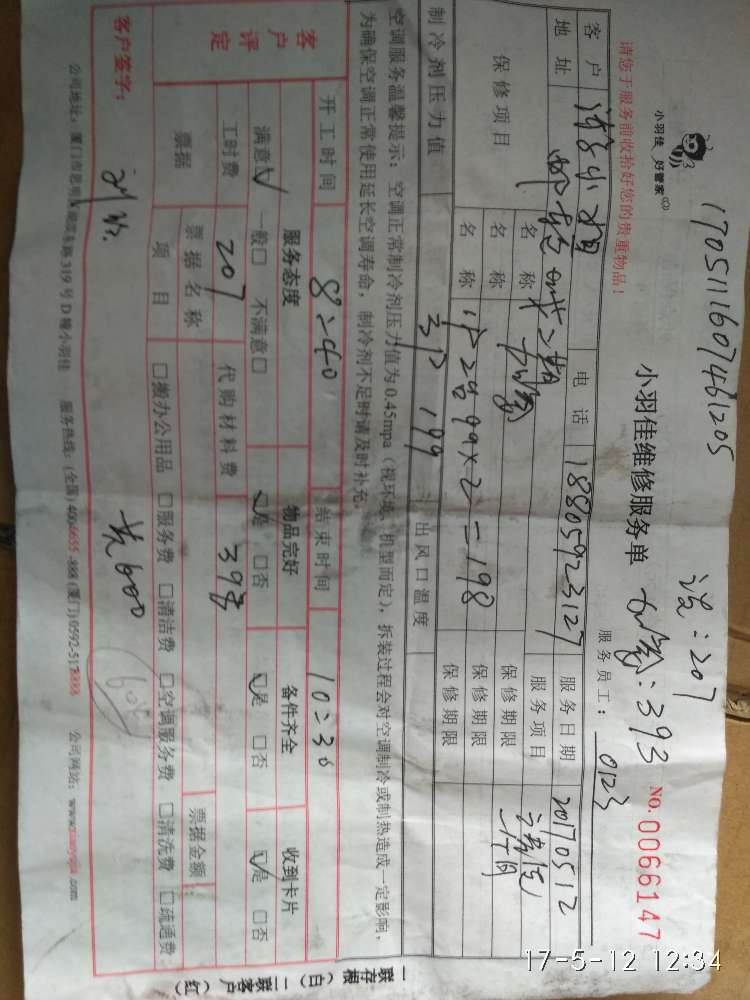 170511160746l205
洗:207
加氟:393
小羽佳 好管家
小羽佳维修服务单
No.0066147
请您于服务前收拾好您的贵重物品!
服务员工: 0123
客户
电话 18805923127
服务日期 20170512
地址
服务项目
保修项目
名称 加氟
保修期限
名称 1P 2台 99×2=198
保修期限
名称 3P 199
保修期限
制冷剂压力值
出风口温度
空调服务温馨提示:空调正常制冷剂压力值为0.45mpa(视环境、机型而定),拆装过程会对空调制冷或制热造成一定影响,
为确保空调正常使用延长空调寿命,制冷剂不足时请及时补充。
开工时间 8:40
结束时间 10:30
客户评定
服务态度
物品完好
备件齐全
收到卡片
满意☑ 一般□ 不满意□
☑是 □否
☑是 □否
☑是 □否
工时费 207
代购材料费 393
票据
票据名称
票据金额:
项目
□搬办公用品 □服务费 □清洁费 □空调服务费 □清洗费 □疏通费
客户签字:
共600
公司地址:厦门市思明
319号D幢小羽佳
服务热线:(全国)4004655-888(厦门)0592-5178888
公司网站:www.xiaoyujia.com
一联存根(白) 二联客户(红)
17-5-12 12:34